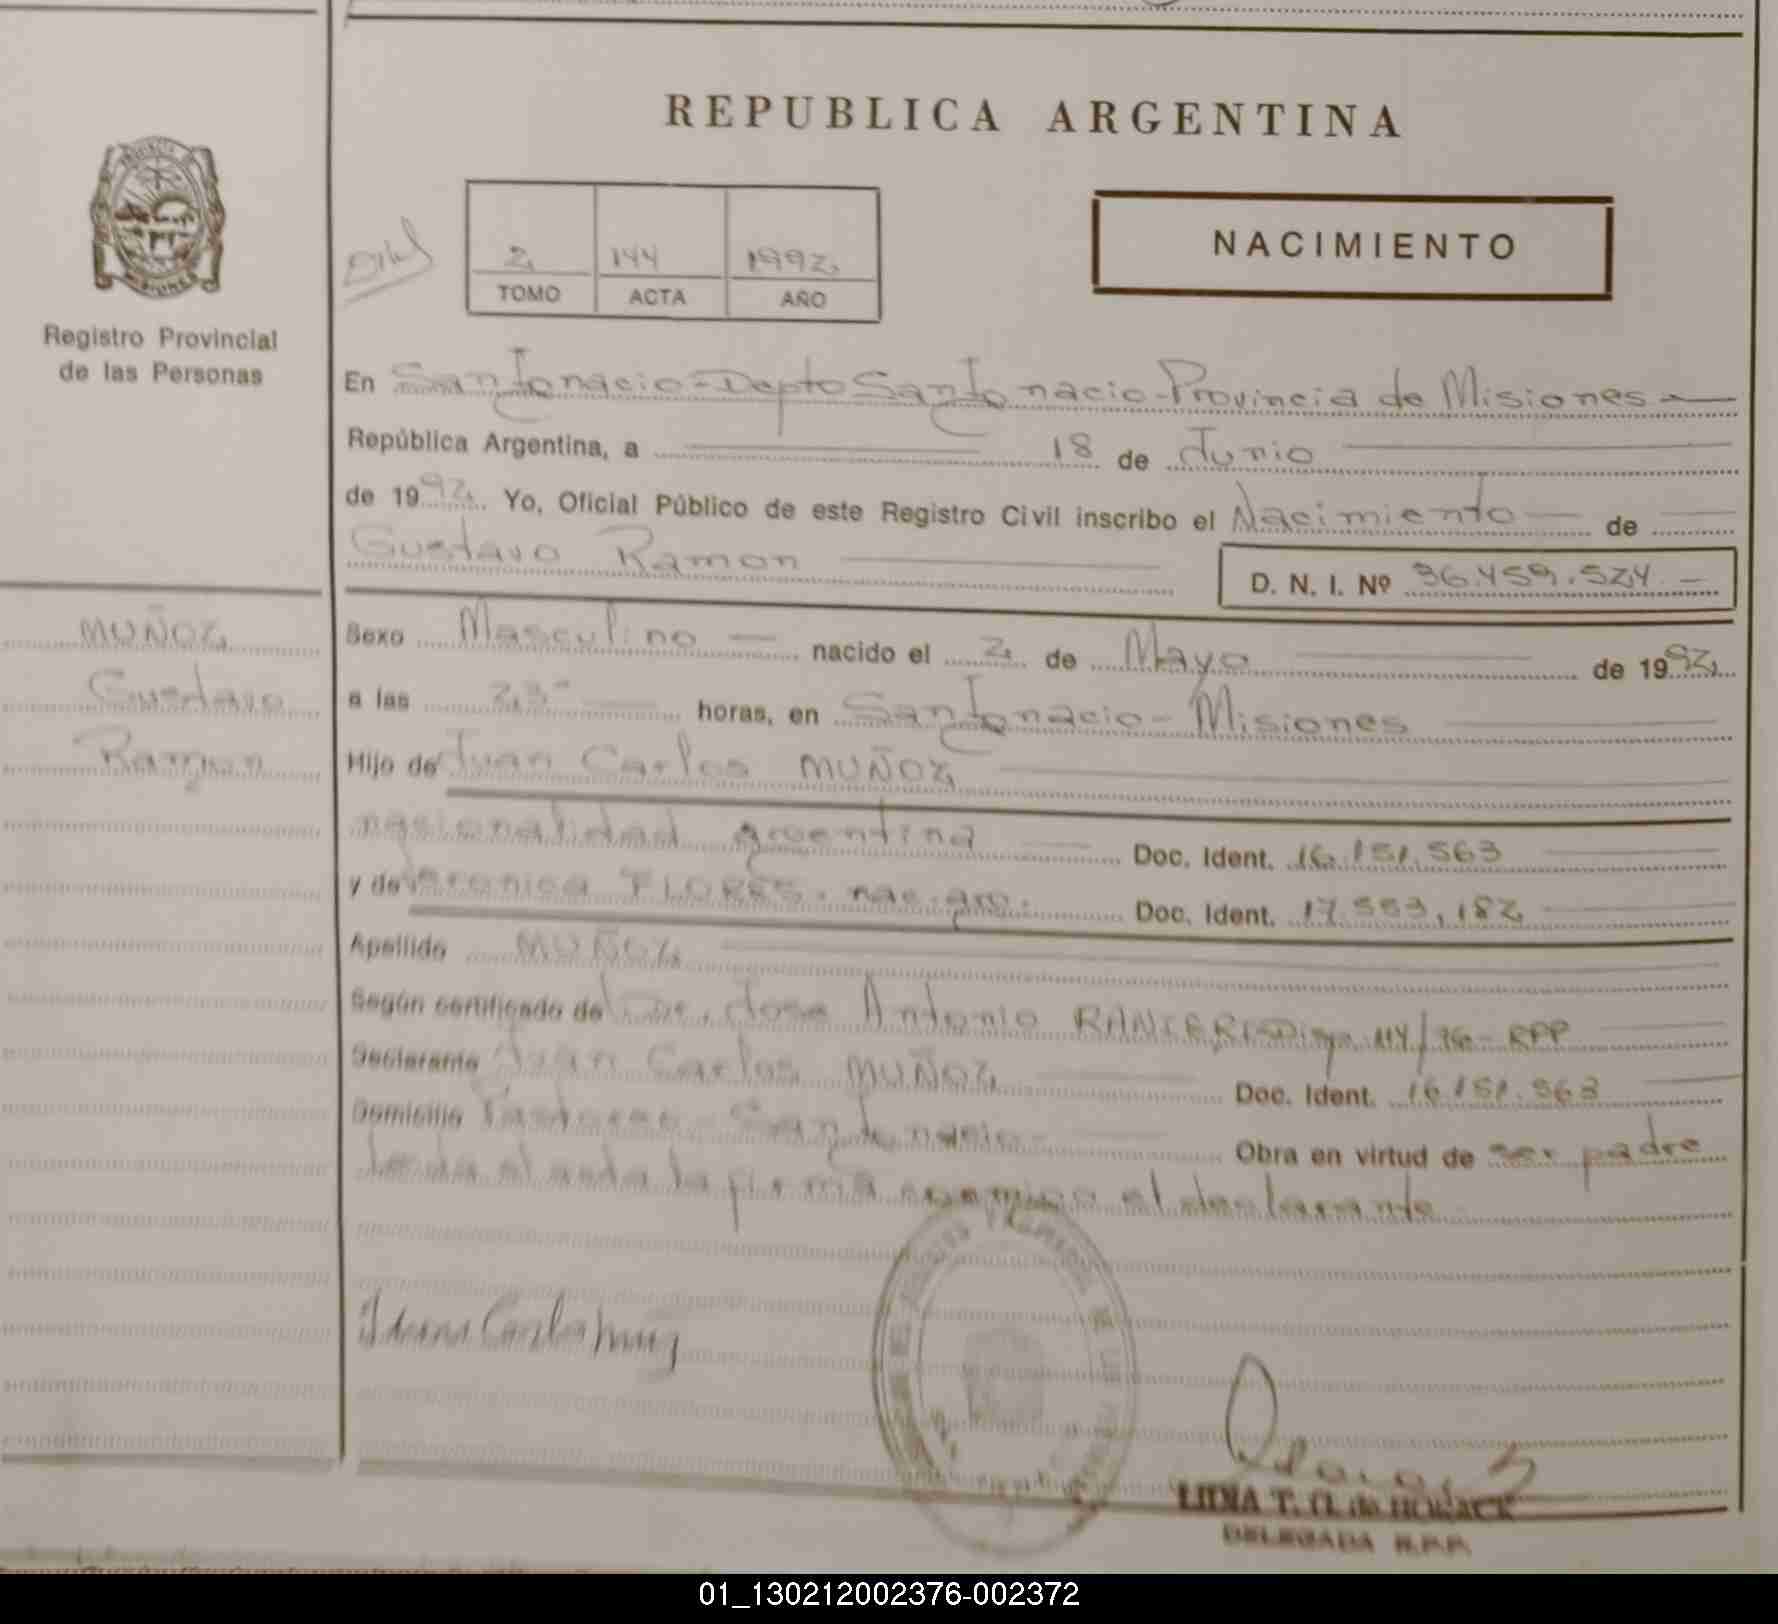 REPUBLICA ARGENTINA
NACIMIENTO
2 144 1992
TOMO ACTA AÑO
Registro Provincial
de las Personas
En San Ignacio - Depto San Ignacio - Provincia de Misiones
República Argentina, a 18 de Junio
de 1992 Yo, Oficial Público de este Registro Civil inscribo el Nacimiento de
Gustavo Ramon
D. N. I. Nº 36.459.524
MUÑOZ
Gustavo
Ramon
Sexo Masculino nacido el 2 de Mayo de 1992
a las horas, en San Ignacio - Misiones
Hijo de Juan Carlos MUÑOZ
nacionalidad argentina Doc. Ident. 16.151.563
y de Veronica FLORES. nac. arg. Doc. Ident. 17.553.182
Apellido MUÑOZ
Según certificado de Dr. Jose Antonio RANIERI 114/76 - RPP
Declarante Juan Carlos MUÑOZ Doc. Ident. 16.151.563
Domicilio San Ignacio Obra en virtud de ser padre
leida el acta la firma conmigo el declarante
Juan Carlos Muñoz
LIDIA T. de HORACK
DELEGADA R.P.P.
01_130212002376-002372